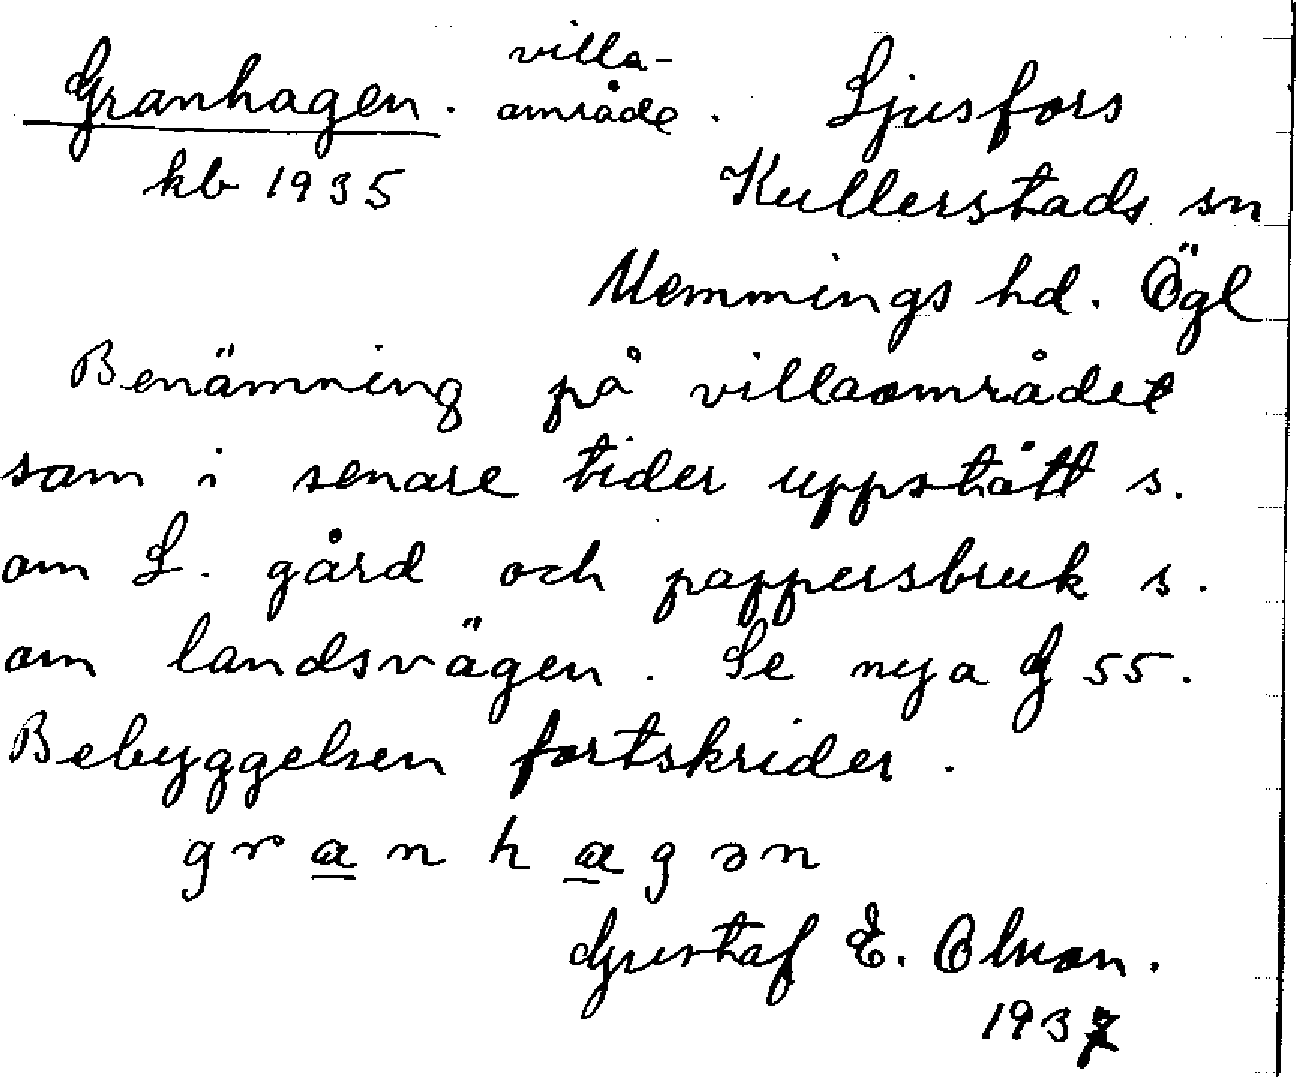 Granhagen. villa-
område. Ljusfors
kb 1935 Kullerstads sn
Memmings hd. Ögl
Benämning på villaområdet
som i senare tider uppstått s.
om L. gård och pappersbruk s.
om landsvägen. Se nya G 55.
Bebyggelsen fortskrider.
granhagən
Gustaf E. Olsson.
1937